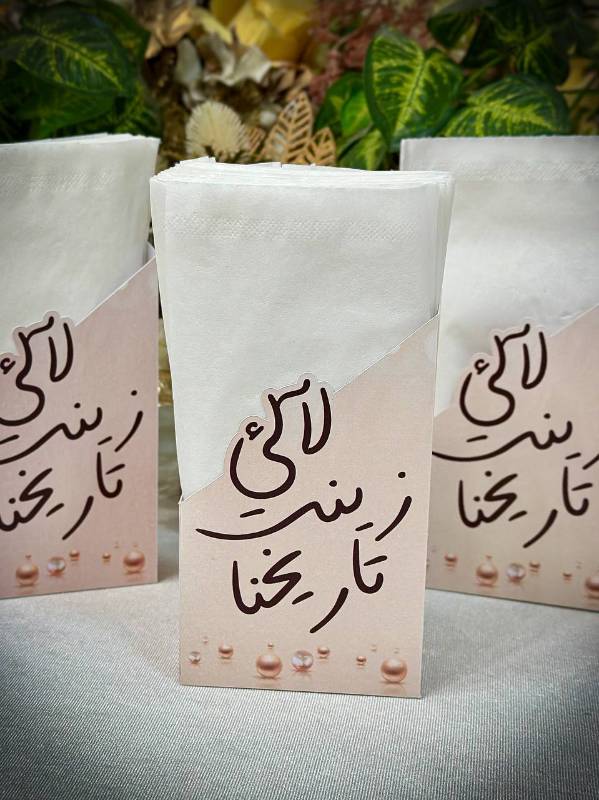 لآلئ
زينت
تاريخنا
لآلئ
زينت
تاريخنا
لآلئ
زينت
تاريخنا